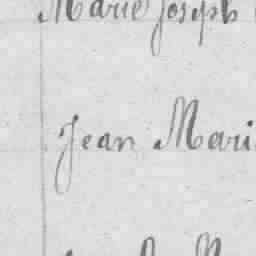 Marie Joseph
Jean Mari